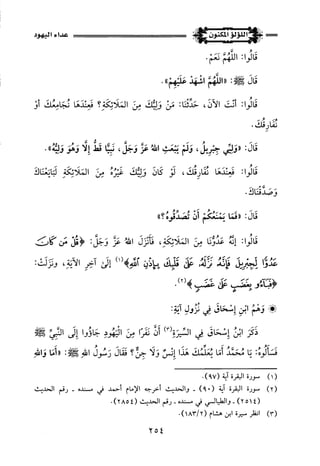 اللؤلؤ المكنون
عداء اليهود
قَالُوا: اللَّهُمَّ نَعَمْ.
قَالَ ﷺ: «اللَّهُمَّ اشْهَدْ عَلَيْهِمْ».
قَالُوا: أَنْتَ الآنَ، حَدِّثْنَا: مَنْ وَلِيُّكَ مِنَ المَلَائِكَةِ؟ فَعِنْدَهَا نُجَامِعُكَ أَوْ
نُفَارِقُكَ.
قَالَ: «وَلِيِّي جِبْرِيلُ، وَلَمْ يَبْعَثِ اللهُ عَزَّ وَجَلَّ، نَبِيًّا قَطُّ إِلَّا وَهُوَ وَلِيُّهُ».
قَالُوا: فَعِنْدَهَا نُفَارِقُكَ، لَوْ كَانَ وَلِيُّكَ غَيْرُهُ مِنَ المَلَائِكَةِ لَتَابَعْنَاكَ
وَصَدَّقْنَاكَ.
قَالَ: «فَمَا يَمْنَعُكُمْ أَنْ تُصَدِّقُوهُ؟»
قَالُوا: إِنَّهُ عَدُوُّنَا مِنَ المَلَائِكَةِ، فَأَنْزَلَ اللهُ عَزَّ وَجَلَّ: ﴿قُلْ مَن كَانَ
عَدُوًّا لِّجِبْرِيلَ فَإِنَّهُ نَزَّلَهُ عَلَى قَلْبِكَ بِإِذْنِ اللهِ﴾(١) إِلَى آخِرِ الآيَةِ، وَنَزَلَتْ:
﴿فَبَآءُو بِغَضَبٍ عَلَى غَضَبٍ﴾(٢).
* وَهْمُ ابْنِ إِسْحَاقَ فِي نُزُولِ آيَةٍ:
ذَكَرَ ابْنُ إِسْحَاقَ فِي السِّيرَةِ(٣) أَنَّ نَفَرًا مِنَ الْيَهُودِ جَاؤُوا إِلَى النَّبِيِّ ﷺ
فَسَأَلُوهُ: يَا مُحَمَّدُ أَمَا يُعَلِّمُكَ هَذَا إِنْسٌ وَلَا جِنٌّ؟ فَقَالَ رَسُولُ اللهِ ﷺ: «أَمَا وَاللهِ
(١) سورة البقرة آية (٩٧).
(٢) سورة البقرة آية (٩٠) ـ والحديث أخرجه الإمام أحمد في مسنده ـ رقم الحديث
(٢٥١٤) ـ والطيالسي في مسنده ـ رقم الحديث (٢٨٥٤).
(٣) انظر سيرة ابن هشام (١٨٣/٢).
٢٥٤